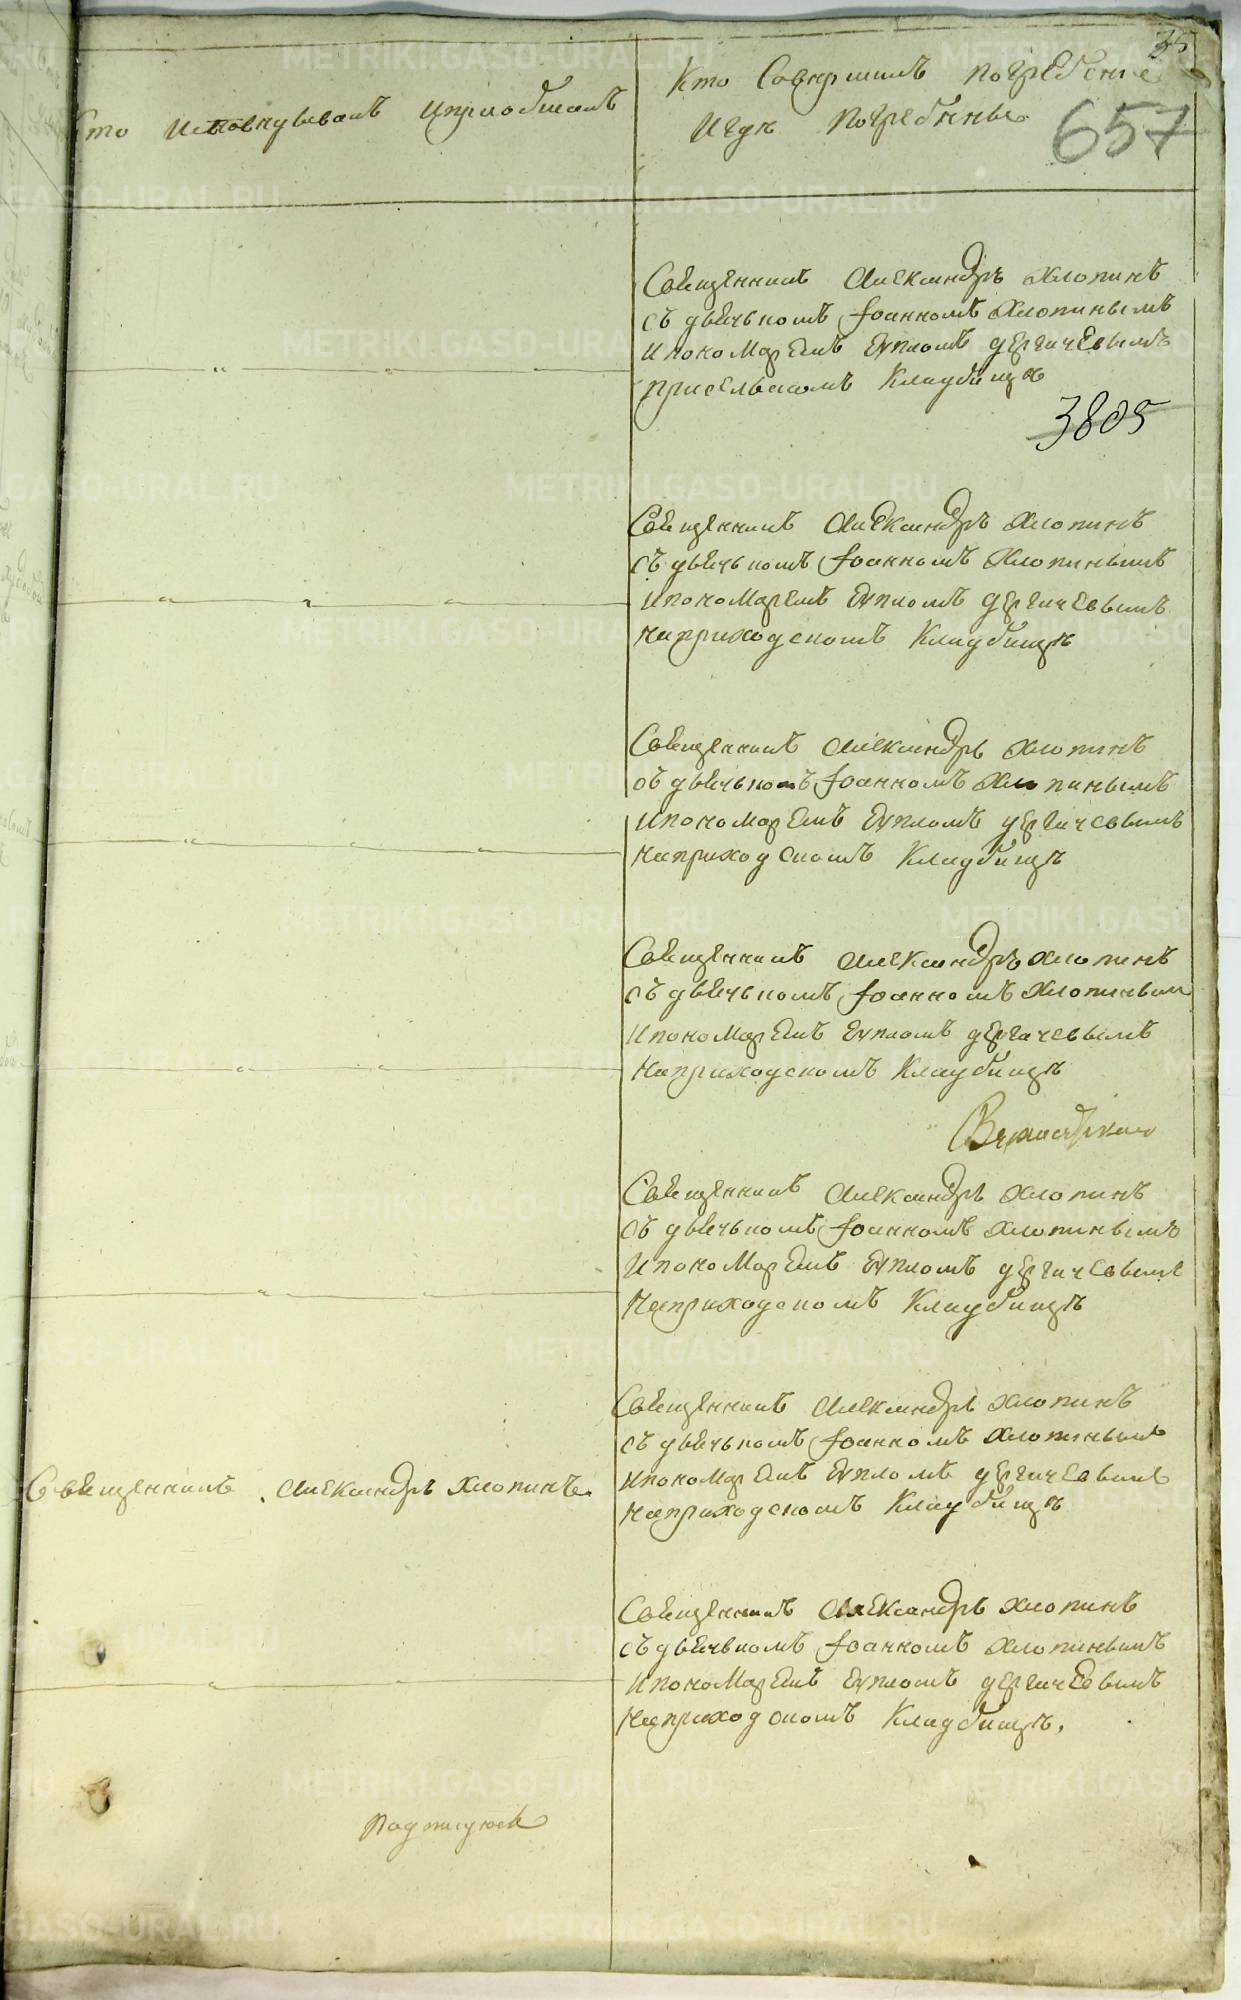 35
657
Кто исповедывалъ и приобщалъ
Кто совершилъ погребение
и где погребены
Священникъ Александръ Хлопинъ
съ дьячькомъ Іоанномъ Хлопинымъ
и пономаремъ Еѵпломъ Дергачевымъ
при сельскомъ кладбище
3805
Священникъ Александръ Хлопинъ
съ дьячькомъ Іоанномъ Хлопинымъ
и пономаремъ Еѵпломъ Дергачевымъ
на приходскомъ кладбищѣ
Священникъ Александръ Хлопинъ
съ дьячькомъ Іоанномъ Хлопинымъ
и пономаремъ Еѵпломъ Дергачевымъ
на приходскомъ кладбищѣ
Священникъ Александръ Хлопинъ
съ дьячькомъ Іоанномъ Хлопиным
и пономаремъ Еѵпломъ Дергачевымъ
на приходскомъ кладбищѣ
Священникъ Александръ Хлопинъ
съ дьячькомъ Іоанномъ Хлопинымъ
и пономаремъ Еѵпломъ Дергачевымъ
на приходскомъ кладбищѣ
Священникъ Александръ Хлопинъ.
Священникъ Александръ Хлопинъ
съ дьячькомъ Іоанномъ Хлопинымъ
и пономаремъ Еѵпломъ Дергачевымъ
на приходскомъ кладбищѣ
Священникъ Александръ Хлопинъ
съ дьячькомъ Іоанномъ Хлопинымъ
и пономаремъ Еѵпломъ Дергачевымъ
на приходскомъ кладбищѣ.
Подписуюсь
METRIKI.GASO-URAL.RU